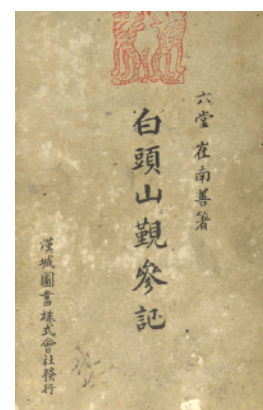 六堂 崔南善著
白頭山覲參記
漢城圖書株式會社發行